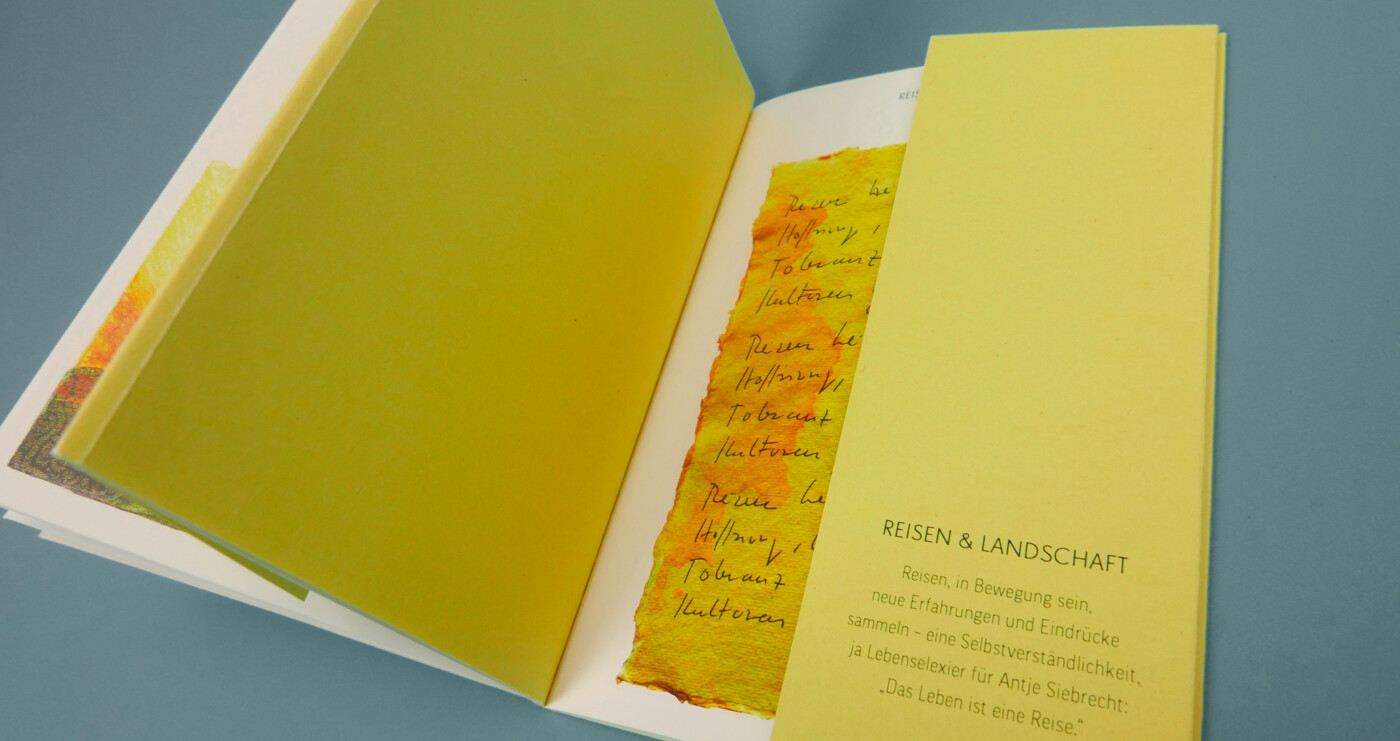 REIS
Reisen be
Hoffnung,
Toleranz
Kulturen
Reisen be
Hoffnung,
Toleranz
Kulturen
Reisen be
Hoffnung,
Toleranz
Kulturen
REISEN & LANDSCHAFT
Reisen, in Bewegung sein,
neue Erfahrungen und Eindrücke
sammeln – eine Selbstverständlichkeit,
ja Lebenselexier für Antje Siebrecht:
„Das Leben ist eine Reise.“